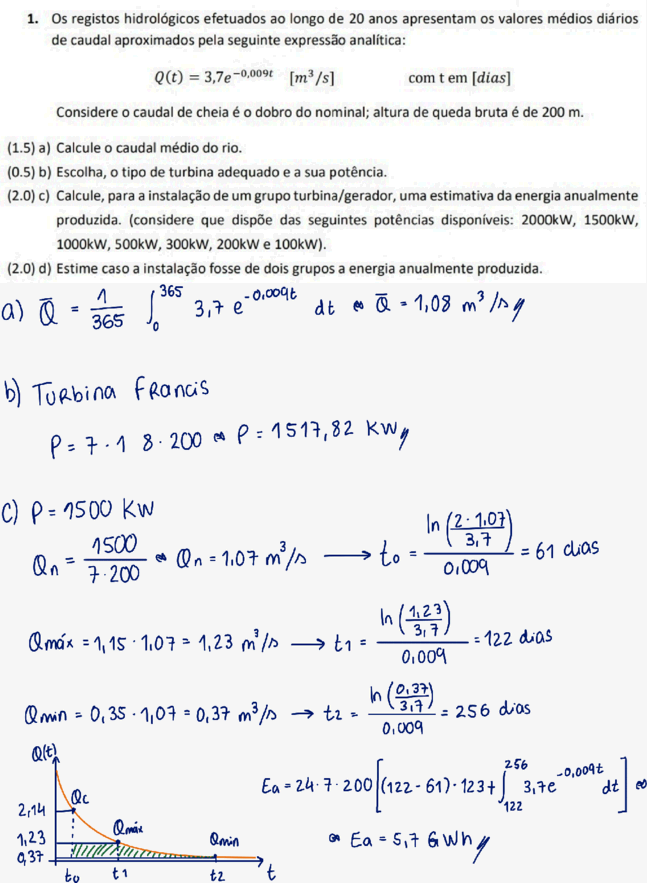 1. Os registos hidrológicos efetuados ao longo de 20 anos apresentam os valores médios diários
de caudal aproximados pela seguinte expressão analítica:
Q(t) = 3,7e^{-0,009t} [m³/s] com t em [dias]
Considere o caudal de cheia é o dobro do nominal; altura de queda bruta é de 200 m.
(1.5) a) Calcule o caudal médio do rio.
(0.5) b) Escolha, o tipo de turbina adequado e a sua potência.
(2.0) c) Calcule, para a instalação de um grupo turbina/gerador, uma estimativa da energia anualmente
produzida. (considere que dispõe das seguintes potências disponíveis: 2000kW, 1500kW,
1000kW, 500kW, 300kW, 200kW e 100kW).
(2.0) d) Estime caso a instalação fosse de dois grupos a energia anualmente produzida.
a) Q̅ = 1/365 ∫₀^{365} 3,7 e^{-0,009t} dt ⇔ Q̅ = 1,08 m³/s //
b) Turbina Francis
P = 7 · 1 8 · 200 ⇔ P = 1517,82 KW //
c) P = 1500 KW
Qn = 1500/(7·200) ⇔ Qn = 1,07 m³/s ⟶ t₀ = ln(2·1,07/3,7)/0,009 = 61 dias
Qmáx = 1,15 · 1,07 = 1,23 m³/s ⟶ t1 = ln(1,23/3,7)/0,009 = 122 dias
Qmin = 0,35 · 1,07 = 0,37 m³/s → t2 = ln(0,37/3,7)/0,009 = 256 dias
Ea = 24·7·200 [(122-61)·123 + ∫₁₂₂^{256} 3,7e^{-0,009t} dt] ⇔
⇔ Ea = 5,7 GWh //
Q(t)
Qc
2,14
Qmáx
1,23
Qmin
0,37
t₀ t1 t2 t